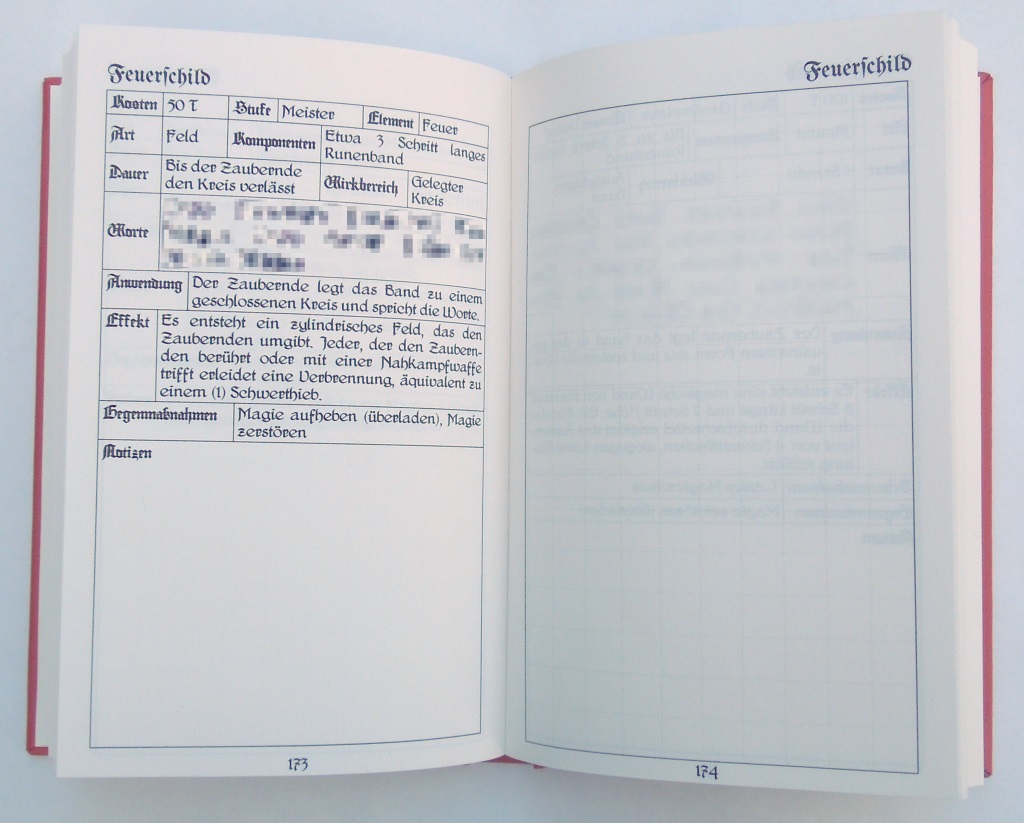 Feuerschild
Kosten 50 T Stufe Meister Element Feuer
Art Feld Komponenten Etwa 3 Schritt langes
Runenband
Dauer Bis der Zaubernde
den Kreis verlässt
Wirkbereich Gelegter
Kreis
Worte
Anwendung Der Zaubernde legt das Band zu einem
geschlossenen Kreis und spricht die Worte.
Effekt Es entsteht ein zylindrisches Feld, das den
Zaubernden umgibt. Jeder, der den Zaubern-
den berührt oder mit einer Nahkampfwaffe
trifft erleidet eine Verbrennung, äquivalent zu
einem (1) Schwerthieb.
Gegenmaßnahmen Magie aufheben (überladen), Magie
zerstören
Notizen
173
Feuerschild
174